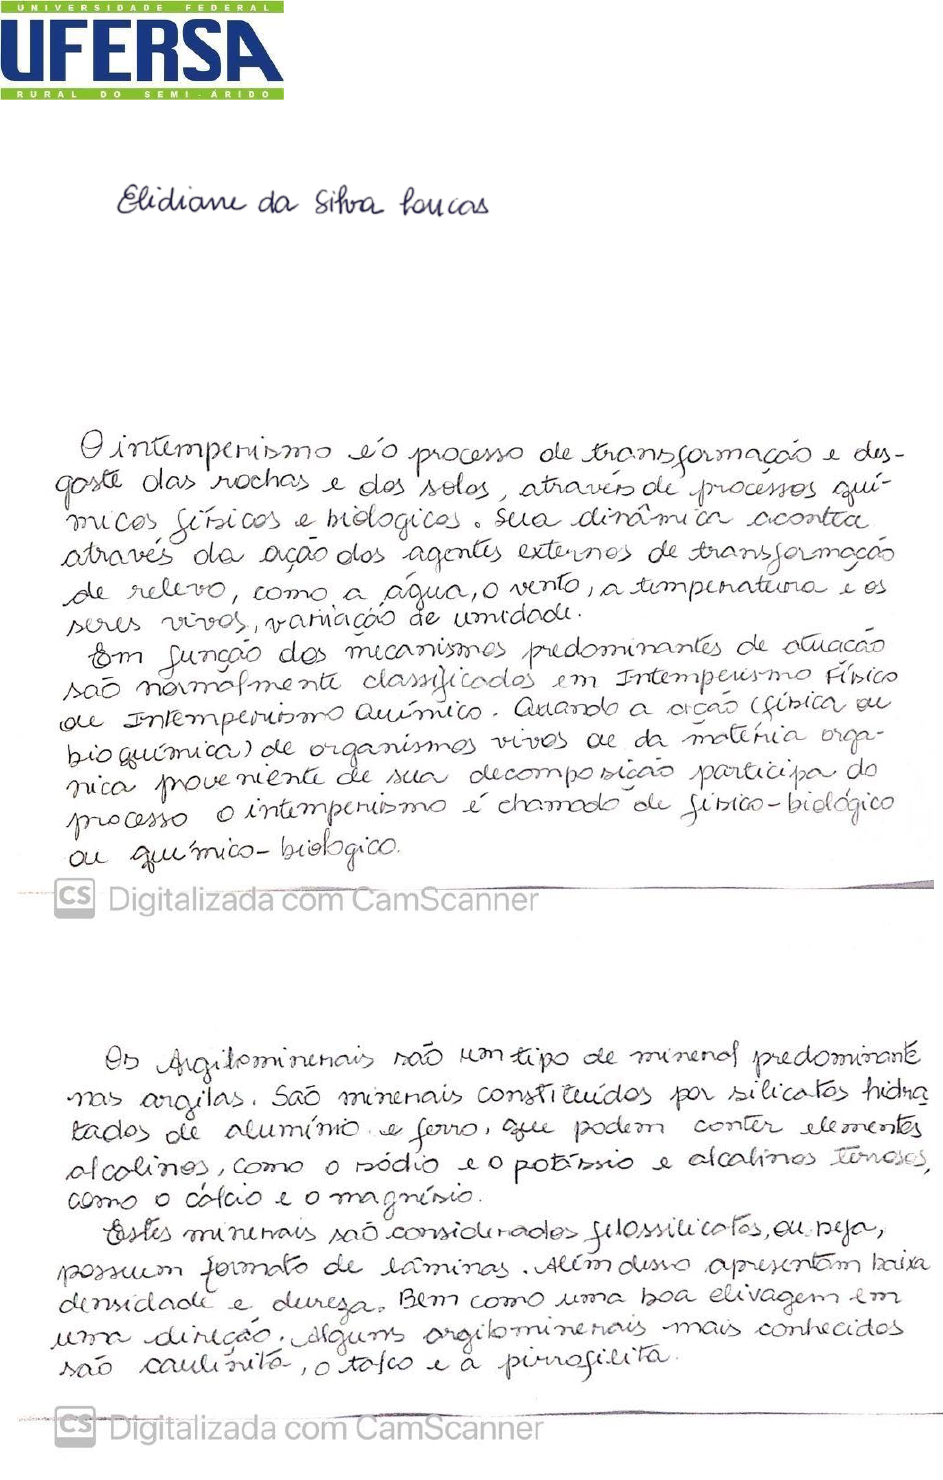 UNIVERSIDADE FEDERAL
UFERSA
RURAL DO SEMI-ÁRIDO
Elidiane da Silva Loucas
O intemperismo é o processo de transformação e des-
gaste das rochas e dos solos, através de processos quí-
micos físicos e biologicos. Sua dinâmica acontea
através da ação dos agentes externos de transformação
de relevo, como a água, o vento, a temperatura e os
seres vivos, variação de umidade.
Em função dos mecanismos predominantes de atuação
são normalmente classificados em Intemperismo Físico
ou Intemperismo Químico. Quando a ação (física ou
bioquímica) de organismos vivos ou da matéria orga-
nica proveniente de sua decomposição participa do
processo o intemperismo é chamado de físico-biológico
ou químico-biologico.
CS Digitalizada com CamScanner
Os Argilominerais são um tipo de mineral predominante
nas argilas. São minerais constituídos por silicatos hidra
tados de alumínio e ferro, que podem conter elementos
alcalinos, como o sódio e o potássio e alcalinos terrosos,
como o cálcio e o magnésio.
Estes minerais são considerados filossilicatos, ou seja,
possuem formato de lâminas. Além disso apresentam baixa
densidade e dureza. Bem como uma boa clivagem em
uma direção. Alguns argilominerais mais conhecidos
são caulinita, o talco e a pirrofilita.
CS Digitalizada com CamScanner